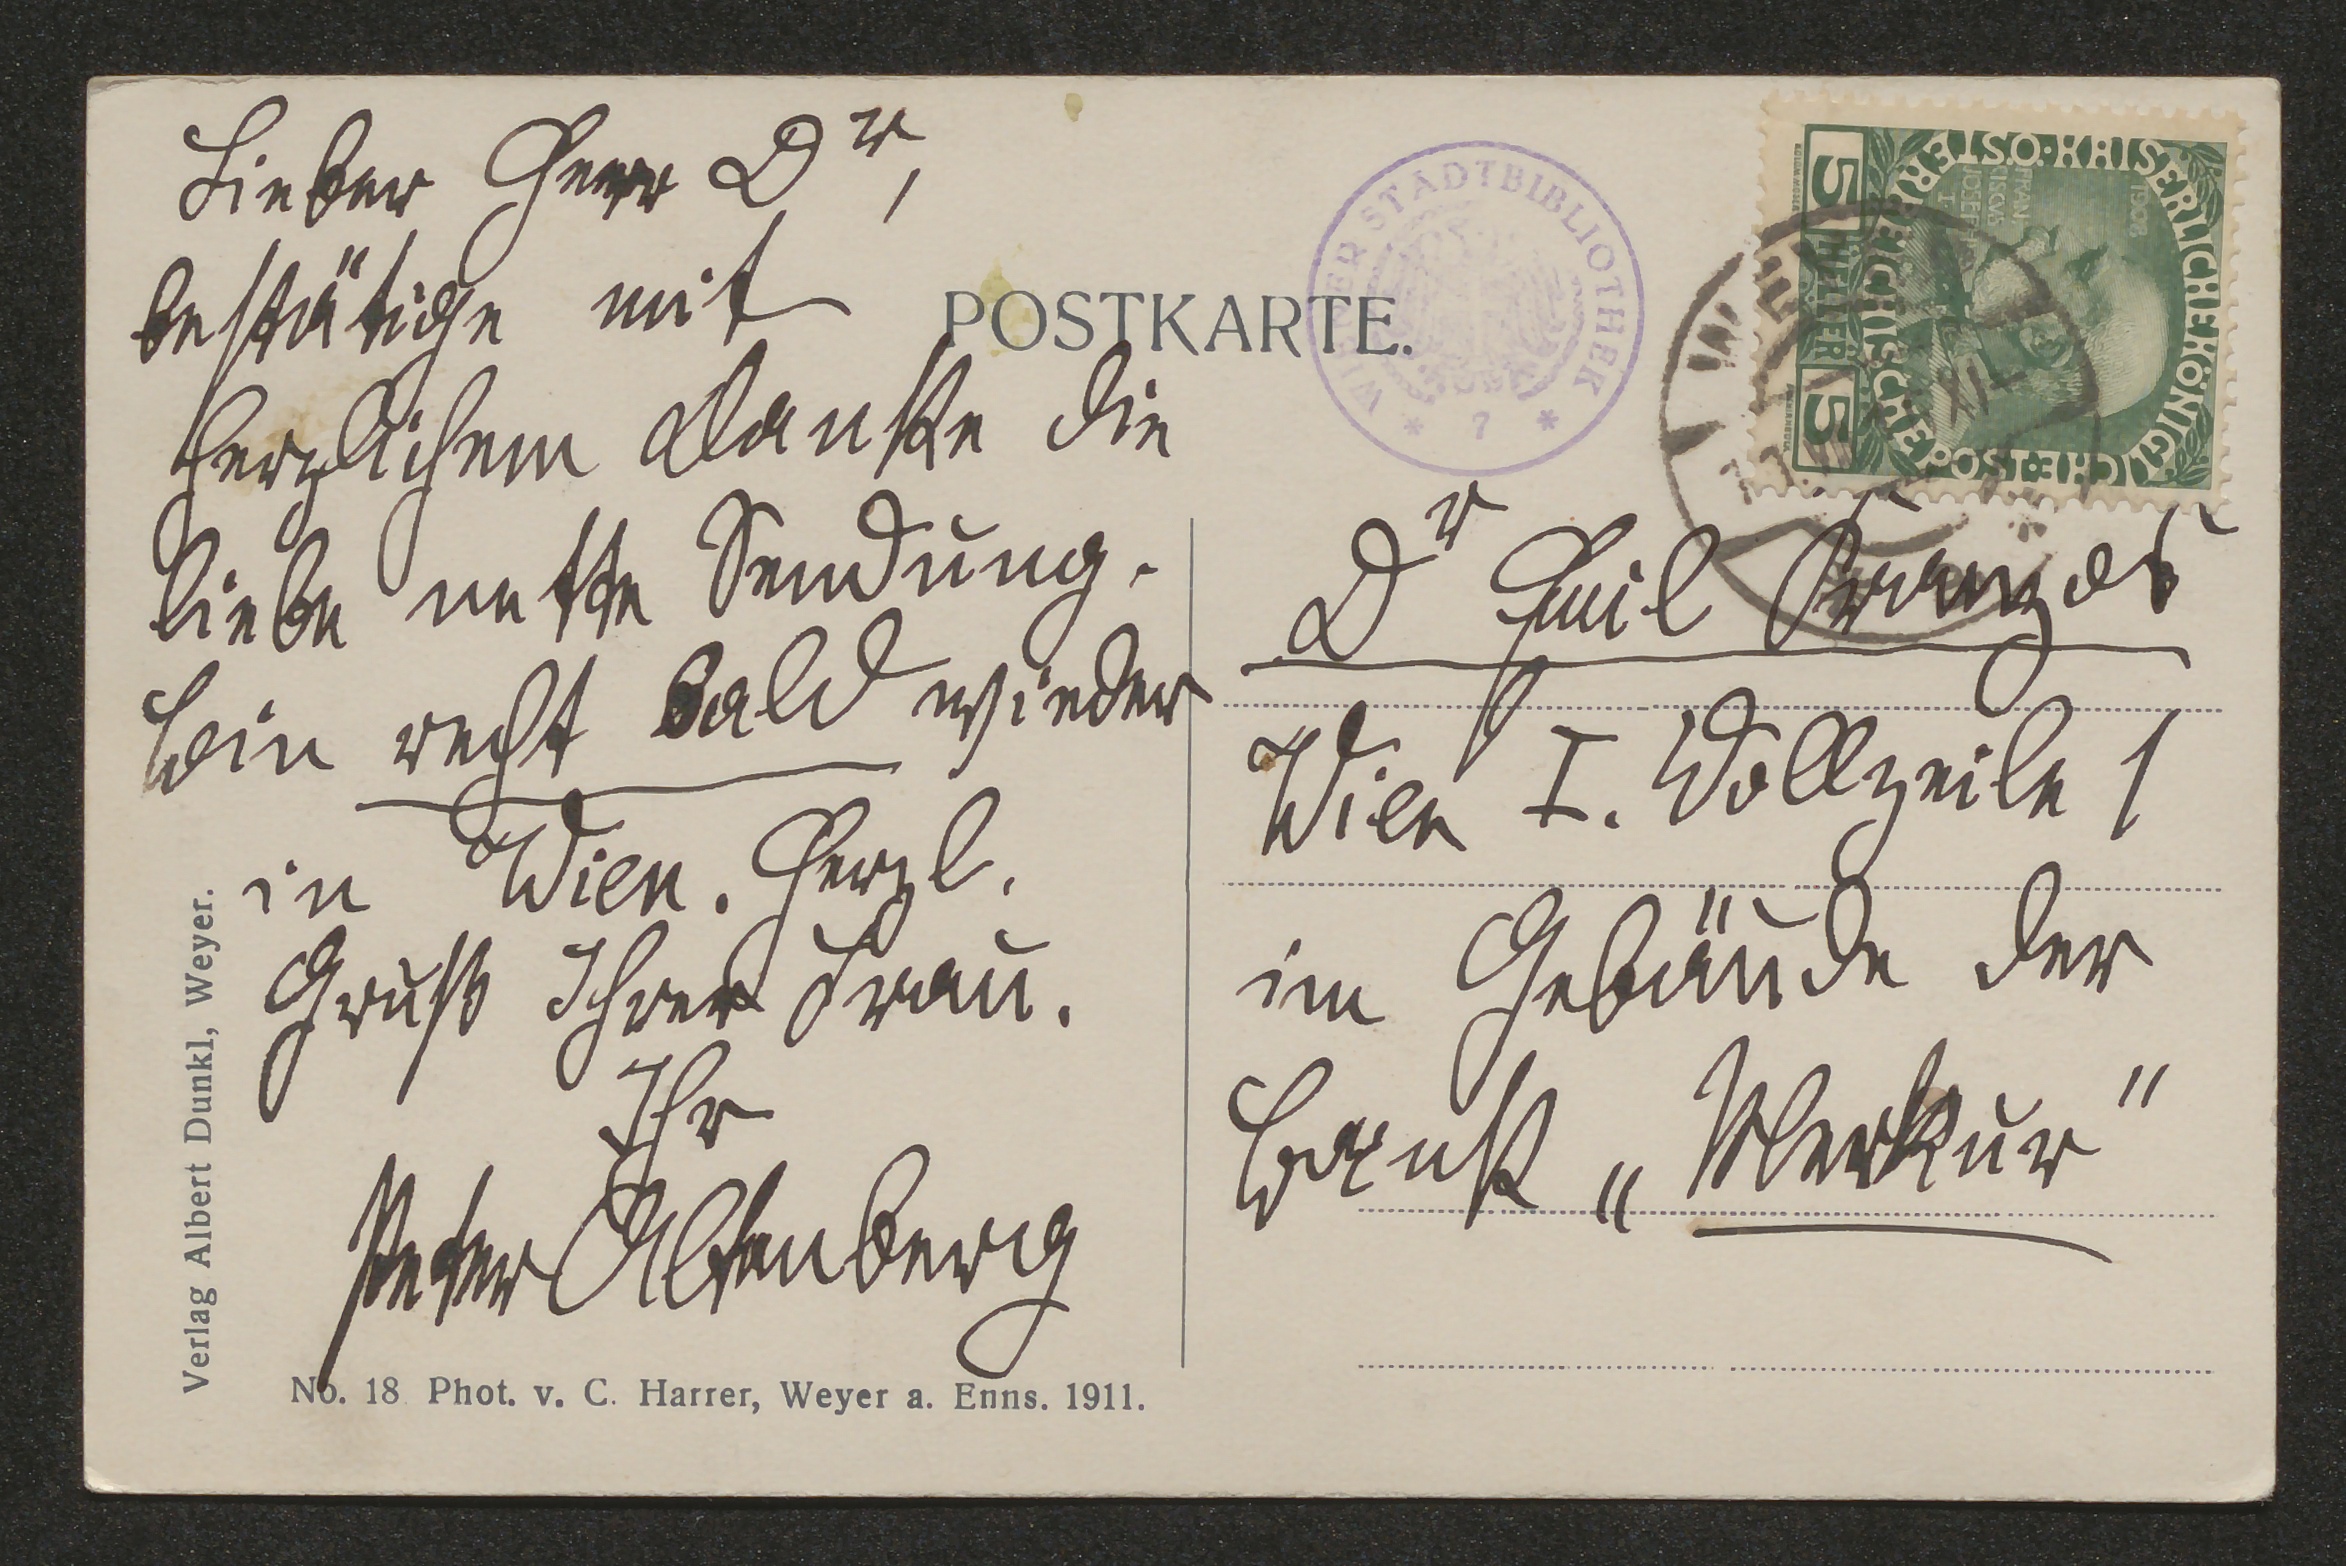 Lieber Herr Dr,
bestätige mit
herzlichem Danke die
liebe nette Sendung.
Bin recht bald wieder
in Wien. Herzl.
Gruß Ihrer Frau.
Ihr
Peter Altenberg
POSTKARTE.
WIENER STADTBIBLIOTHEK
* 7 *
KAISERLICHE KÖNIGLICHE ÖSTERREICHISCHE POST
5 HELLER 5
1908
Dr Emil Franzos
Wien I. Wollzeile 1
im Gebäude der
Bank „Merkur"
Verlag Albert Dunkl, Weyer.
No. 18 Phot. v. C. Harrer, Weyer a. Enns. 1911.